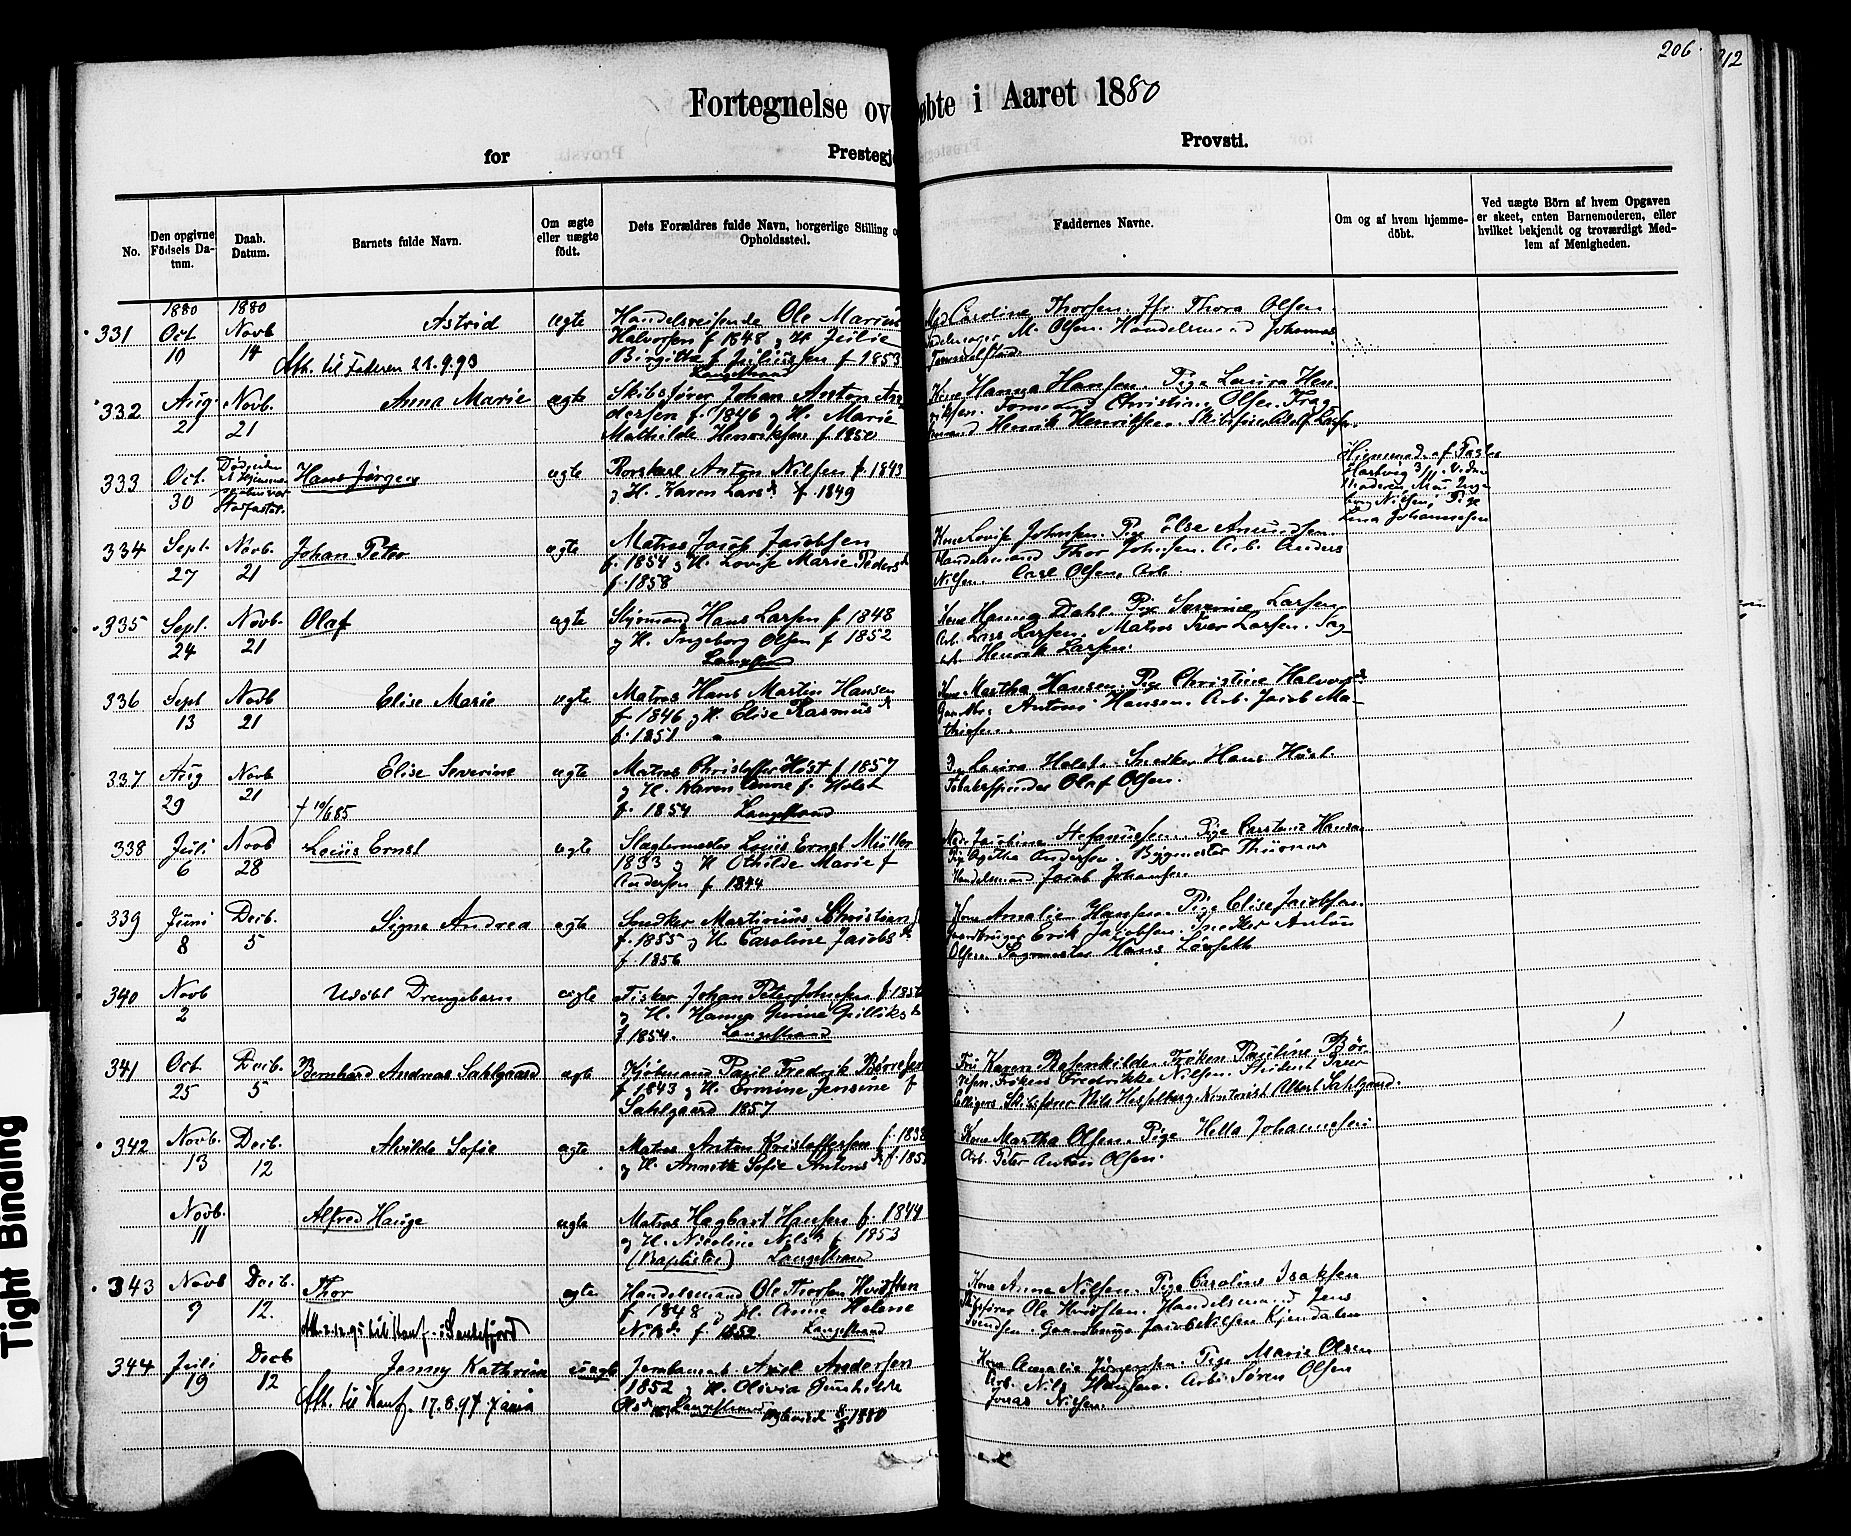 206.
212
Fortegnelse ov øbte i Aaret 1880
for Prestegje Provsti.
No.
Den opgivne Födsels Datum.
Daab. Datum.
Barnets fulde Navn.
Om ægte eller uægte födt.
Dets Forældres fulde Navn, borgerlige Stilling o Opholdssted.
Faddernes Navne.
Om og af hvem hjemmedöbt.
Ved uægte Börn af hvem Opgaven er skeet, enten Barnemoderen, eller hvilket bekjendt og troværdigt Medlem af Menigheden.
1880 1880
331 Oct 19 Novb 14 Astrid ægte
Att. til Faderen 21.9.93
Handelsreisende Ole Marius
Halvorsen f 1848 og H. Julie
Birgitte f Juliussen f 1853
Langestrand
Caroline Thorsen. Jfr Thora Olsen.
M. Olsen. Handelsmand Johannes
332 Aug. 21 Novb. 21 Anna Marie ægte
Skibsfører Johan Anton An
dersen f. 1846 og H. Marie
Mathilde Henriksen f. 1850
Kone Hanna Hansen. Pige Laura Hen
riksen. Tømmand Christin Olsen. Frag
mand Henrik Henriksen. Skibsfører Adolf Larsen.
333 Oct. 30 Hans Jørgen ægte
Rorskarl Anton Nilsen f. 1843
og H. Karen Larsd. f. 1849
Hjemmed. af
Hartvig 3/11. V.
Moderen,
Nilsen, Pige
Lina Johannesen
334 Sept. 27 Novb. 21 Johan Peter ægte
Matros Josef Jacobsen
f. 1854 og H. Lovise Marie Peders
f. 1858
Kone Lovise Johnsen. Pige Else Amundsen.
Handelsmand Thor Johnsen. Arb. Anders
Nilsen. Carl Olsen, Arb.
335 Sept. 24 Novb. 21 Olaf ægte
Styrmand Hans Larsen f 1848
og H. Ingeborg Olsen f 1852
Kone Hanna Dahl. Pige Severine Larsen
Arb. Lars Larsen. Matros Iver Larsen. Sag
arb Henrik Larsen.
336 Sept 13 Novb 21 Elise Marie ægte
Matros Hans Martin Hansen
f. 1846 og H. Elise Rasmusd
f. 1851
Kone Martha Hansen. Pige Christine Halvorsd
Anton Hansen. Arb. Jacob Ma
thisen.
337 Aug 29 Novb 21 Elise Severine ægte
† 10/6 85
Matros Christoffer Høst f 1857
og H. Karen Anne f. Holst
f. 1854 Langestrand
Laura Holst. Snedker Hans Höst.
Tobakspinder Olaf Olsen.
338 Juli 6 Novb 28 Louis Ernst ægte
Slagtermester Louis Ernst Müller
1833 og H Othilde Marie f
Andersen f. 1844
Madm Josefine Stefanussen. Pige Carstine Hansen
Pige Agathe Andersen. Bygmester Thurmer
Handelsmand Jacob Johansen.
339 Juni 8 Decb. 5 Signe Andrea ægte
Snedker Martinius Christian
f. 1855 og H. Caroline Jacobsd
f 1856
Kone Amalie Hansen. Pige Elise Jacobsen.
Gaardbruger Erik Jacobsen. Snedker Anton
Olsen. Sagmester Hans Løvseth
340 Novb 2 Udöbt Drengebarn ægte
Fisker Johan Peter Johnsen f. 185
og H. Hanna Gurine Gulliks
f 1854. Langestrand
341 Oct 25 Decb. 5 Bernhard Andreas Sahlgaard ægte
Kjøbmand Paul Fredrik Børresen
f 1843 og H. Ermine Jensine f
Sahlgaard 1857
Fru Karen Rosenkilde. Frøken Pauline Bör
resen. Frøken Fredrikke Nilsen. Student Iver
Skibsfører Nils Hesselberg. Kontorist Albert Sahlgaard.
342 Novb. 13 Decb. 12 Alvilde Sofie ægte
Matros Anton Kristoffersen f. 1838
og H. Annette Sofie Antonsd f. 185
Kone Martha Olsen. Pige Hella Johannesen
Arb. Peter Anton Olsen.
Novb. 11 Alfred Hauge ægte
Matros Hagbart Hansen f. 1844
og H. Nicoline Nilsd f. 1853
(Baptister) Langestrand
343 Novb 9 Decb. 12. Thor ægte
Handelsmand Ole Thorsen Hvidsten
f 1848 og H. Anne Helene
Nilsd. f. 1852. Langestrand
Kone Anne Nilsen. Pige Caroline Isaksen
Skibsfører Ole Hvidsten. Handelsmand Jens
Svendsen. Gaardbruger Jacob Nilsen Kjendalen
344 Juli 19 Decb 12 Jenny Kathrine uægte
Att. til Konf. 17.8.94
Axel Andersen
1852 og H. Olivia Gunhilde
Olsd Langestrand 1880
Kone Amalie Jörgensen. Pige Marie Olsen
Arb. Nils Hansen. Arb. Søren Olsen
Jonas Nilsen.
Tight Binding